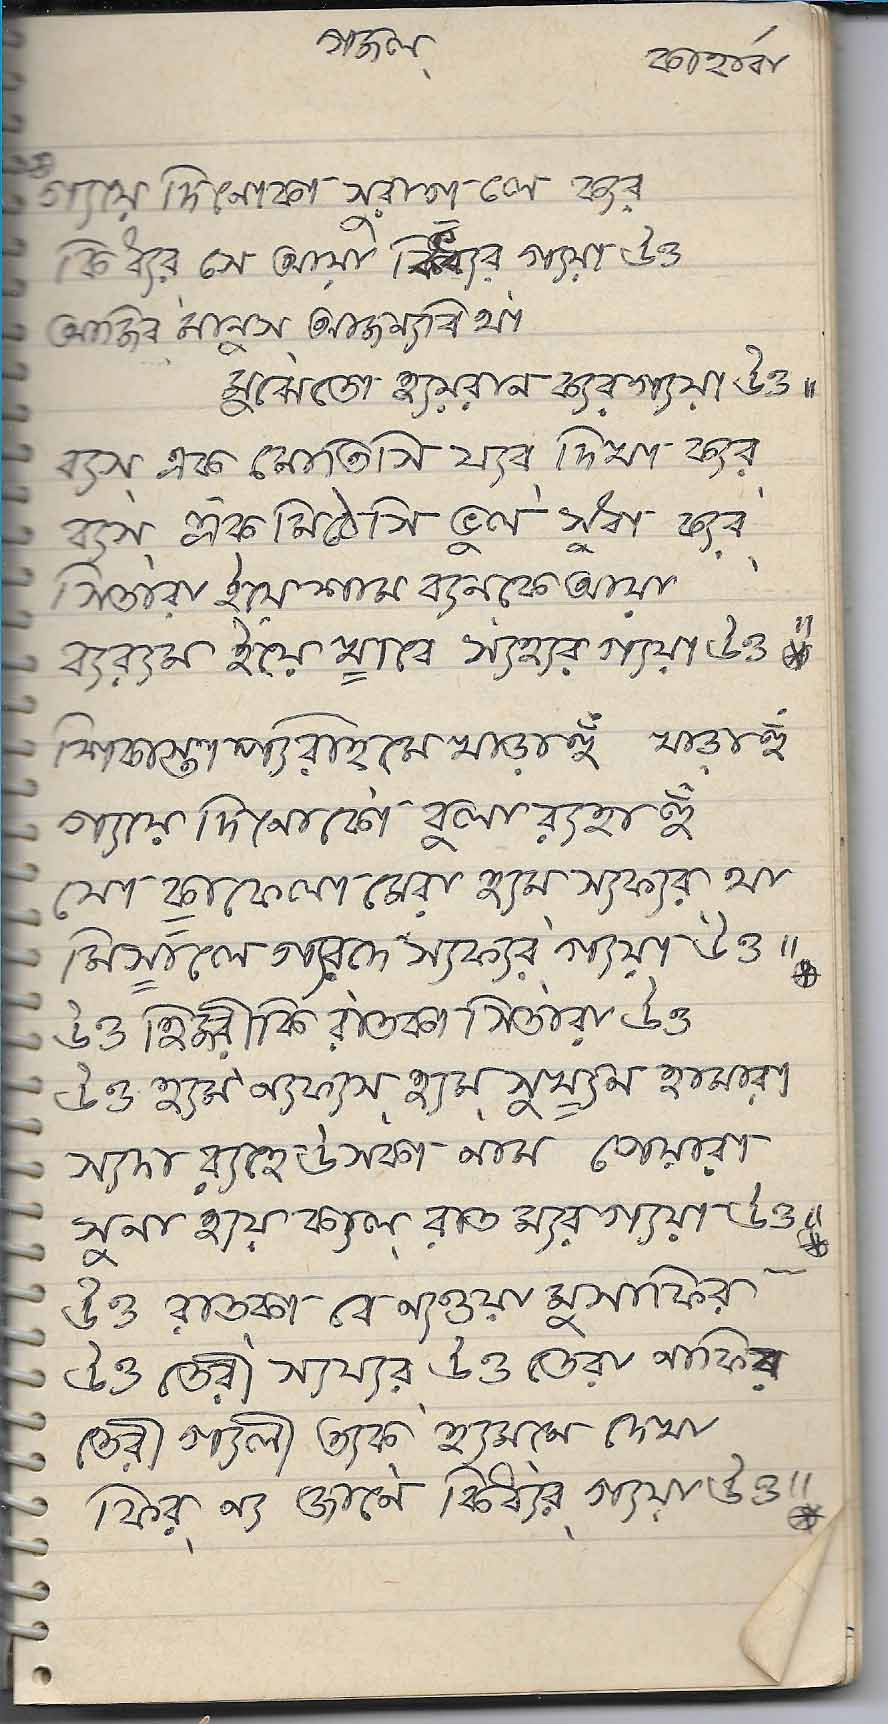 গজল্ কাহার্বা
গ্যয়ে দিনোকা সুরাগ লে ক্যর্
কিধ্যর সে আয়া কিধ্যর গ্যয়া উও
আজিব্ মানুস্ আজন্যবি থা
মুঝেতো হ্যয়রান ক্যর্ গ্যয়া উও ॥
ব্যস্ এক মোতিসি ছ্যব্ দিখা ক্যর্
ব্যস্ এক মিঠিসি ধুন সুনা ক্যর্
সিতারা ইয়ে শাম ব্যনকে আয়া
ব্যর‍্যঙ্গ ইয়ে খ্বাবে স্যহ্যর গ্যয়া উও ॥
শিকাস্তা প্যা রাহমে খাড়া হুঁ খাড়া হুঁ
গ্যয়ে দিনোকো বুলা র‍্যহা হুঁ
যো কাফেলা মেরা হ্যম্ স্যফ্যর থা
মিসালে গ্যরদে স্যফ্যর গ্যয়া উও ॥
উও হিজ্রী কি রাতকা সিতারা উও
উও হ্যম্ ন্যফ্যস্ হ্যম্ সুখ্যন হামারা
স্যদা র‍্যহে উসকা নাম পেয়ারা
সুনা হ্যয় ক্যাল্ রাত ম্যর গ্যয়া উও ॥
উও রাতকা বে ন্যওয়া মুসাফির
উও তেরা শ্যয়্যর উও তেরা নাসির
তেরী গ্যলী ত্যক্ হ্যমনে দেখা
ফির্ ন্য জানে কিধ্যর্ গ্যয়া উও ॥